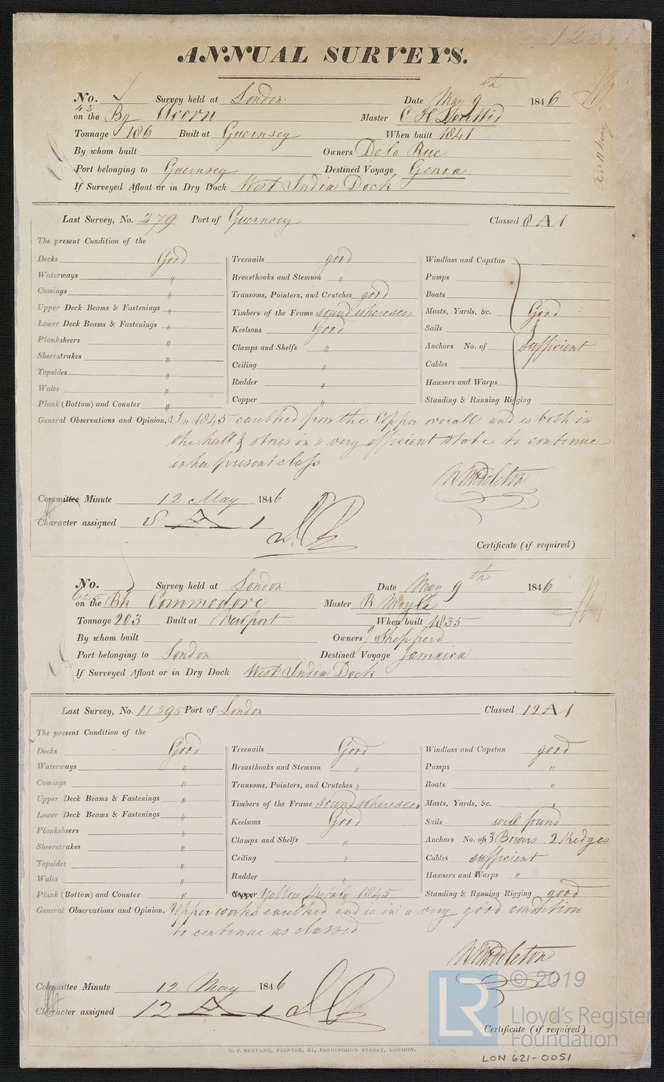 ANNUAL SURVEYS.
No. Survey held at London Date May 9th 1846
on the Bg Acorn Master C H
Tonnage 186 Built at Guernsey When built 1841
By whom built Owners De la Rue
Port belonging to Guernsey Destined Voyage Genoa
If Surveyed Afloat or in Dry Dock West India Dock
Last Survey, No. 379 Port of Guernsey Classed 8 A 1
The present Condition of the
Decks Good Treenails good Windlass and Capstan
Waterways " Breasthooks and Stemson " Pumps
Comings " Transoms, Pointers, and Crutches good Boats
Upper Deck Beams & Fastenings " Timbers of the Frame sound where seen Masts, Yards, &c. Good
Lower Deck Beams & Fastenings " Keelsons Good Sails &
Planksheers " Clamps and Shelfs " Anchors No. of sufficient
Sheerstrakes " Ceiling " Cables
Topsides " Rudder " Hawsers and Warps
Wales " Copper " Standing & Running Rigging
Plank (Bottom) and Counter "
General Observations and Opinion, In 1845 caulked from the Upper overall and is both in
the hull & stores in a very efficient state to continue
in her present class
W Middleton
Committee Minute 12 May 1846
Character assigned 8 A 1
Certificate (if required)
No. Survey held at London Date May 9th 1846
on the Bk Commodore Master R Moyle
Tonnage 203 Built at Newport When built 1835
By whom built Owners Shepperd
Port belonging to London Destined Voyage Jamaica
If Surveyed Afloat or in Dry Dock West India Dock
Last Survey, No. 11295 Port of London Classed 12 A 1
The present Condition of the
Decks Good Treenails Good Windlass and Capstan good
Waterways " Breasthooks and Stemson " Pumps "
Comings " Transoms, Pointers, and Crutches " Boats "
Upper Deck Beams & Fastenings " Timbers of the Frame sound where seen Masts, Yards, &c. "
Lower Deck Beams & Fastenings " Keelsons Good Sails well found
Planksheers " Clamps and Shelfs " Anchors No. of 3 Bowers 2 Kedges
Sheerstrakes " Ceiling " Cables sufficient
Topsides " Rudder " Hawsers and Warps "
Wales " Copper Yellow 1845 Standing & Running Rigging good
Plank (Bottom) and Counter "
General Observations and Opinion, Upperworks caulked and is in a very good condition
to continue as classed
W Middleton
Committee Minute 12 May 1846
Character assigned 12 A 1
Certificate (if required)
LR © 2019
Lloyd's Register
Foundation
LON 621-0051